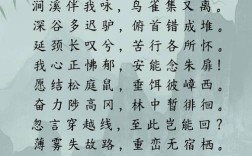 涧溪伴我咏，鸟雀集又离。
深谷多迟驴，俯首错成堆。
延颈长叹兮，苦行各所怀。
我心正怫郁，安能念朱扉！
愿结松庭鼠，垂饵彼嶂西。
奋力陟高冈，林中暂徘徊。
忽言穿越线，至此岂能回？
薄雾失故路，重峦无宿栖。